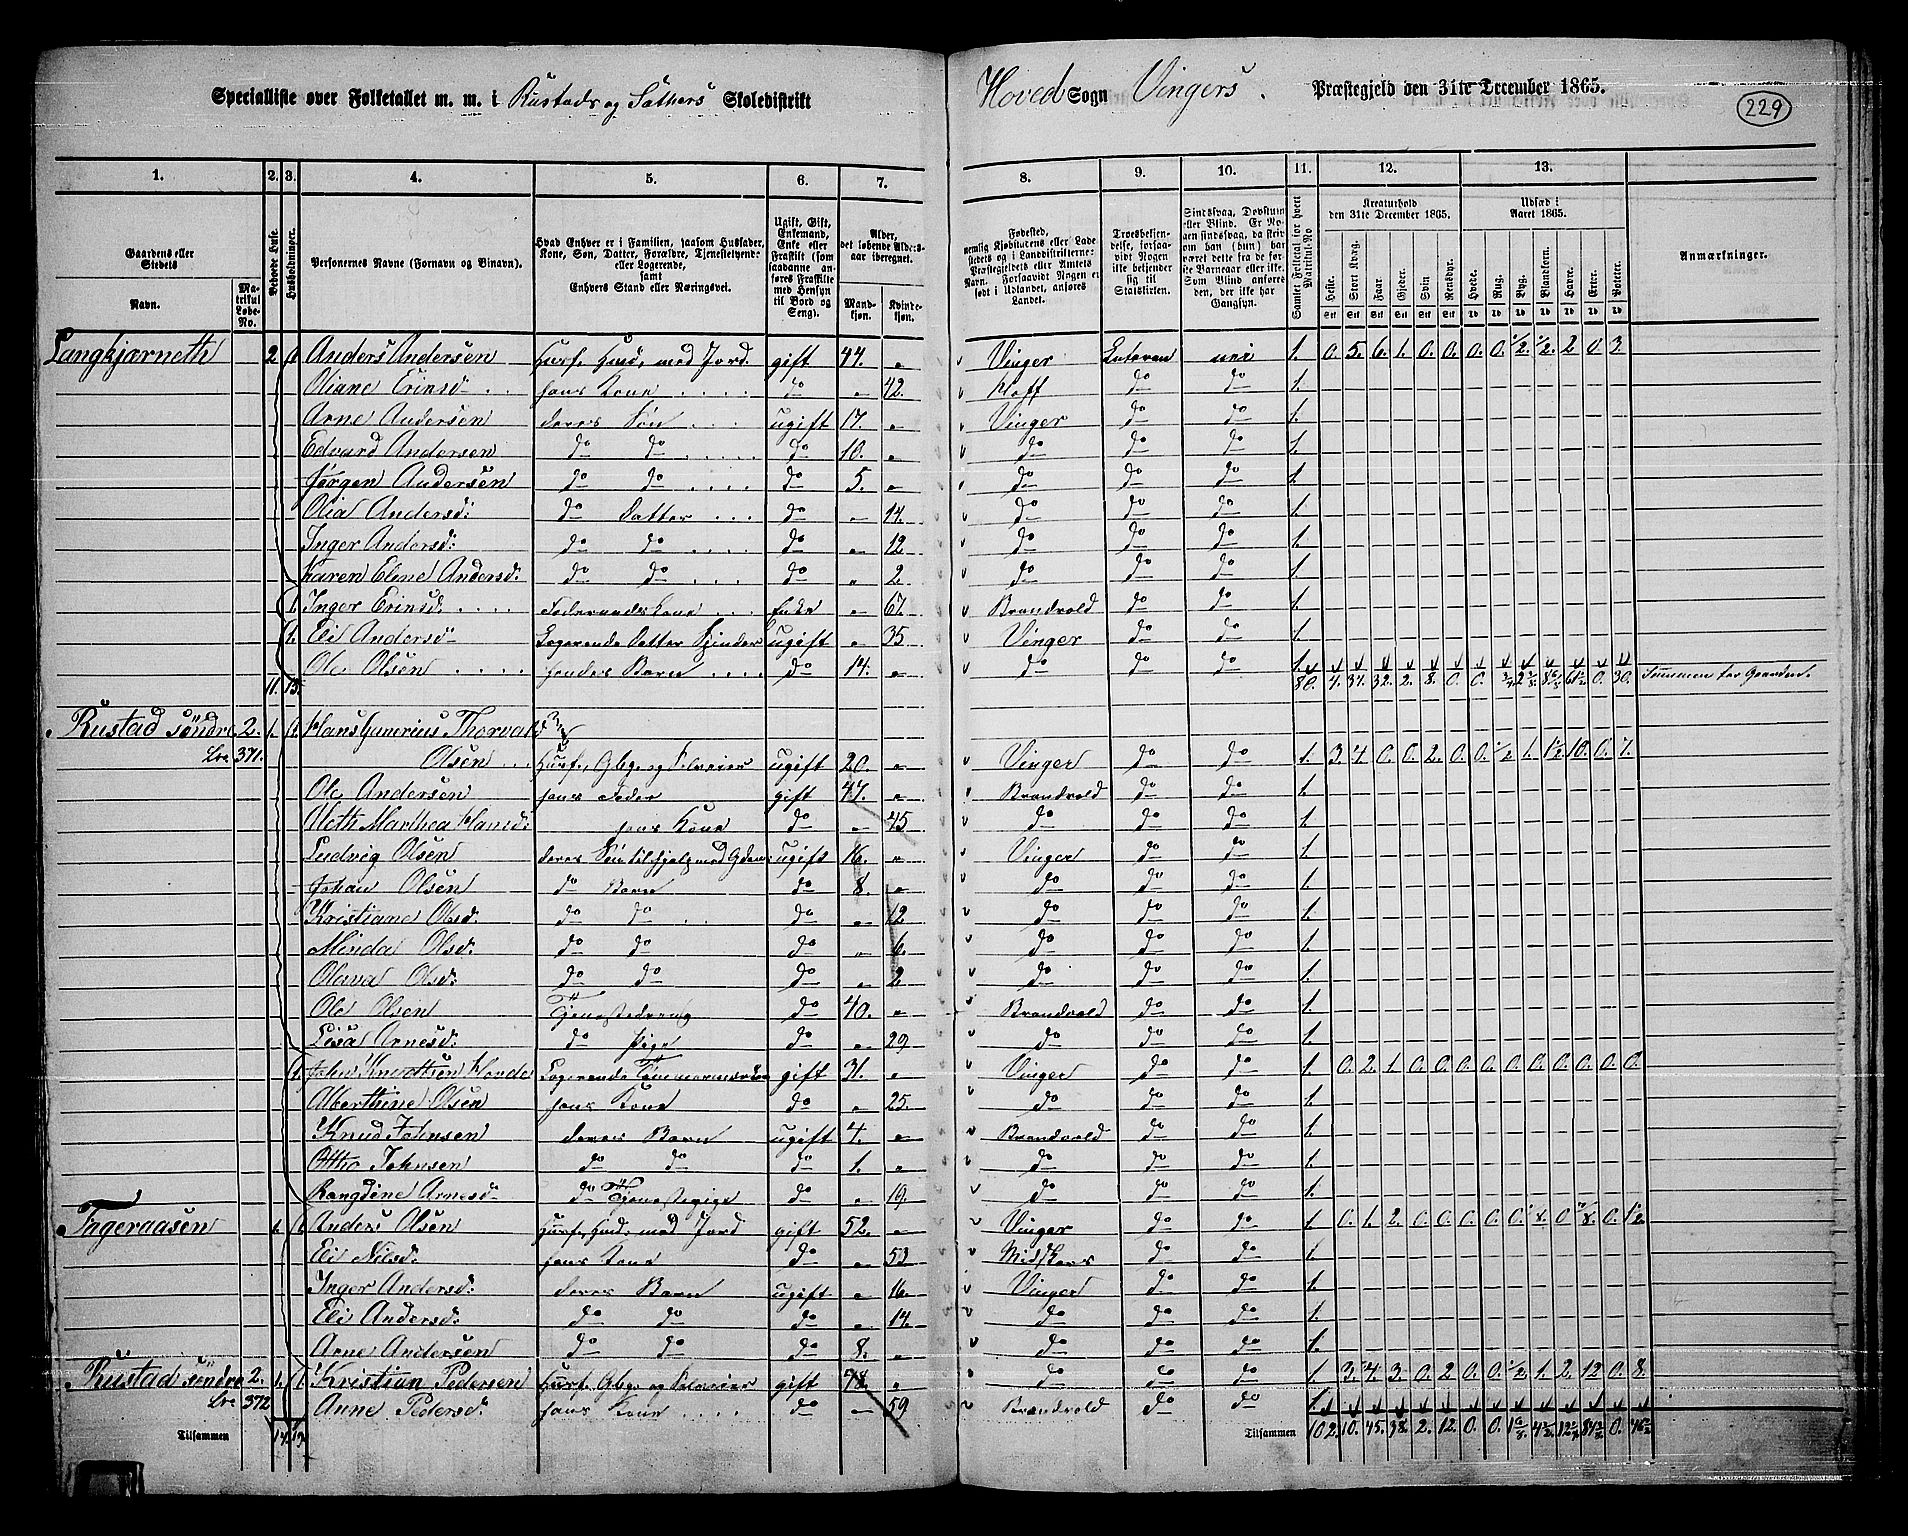 Specialliste over Folketallet m. m. i Rustads og Sæthers Skoledistrikt Hoved Sogn Vingers Præstegjeld den 31te December 1865.
229
1. 2. 3. 4. 5. 6. 7. 8. 9. 10. 11. 12. 13.
Gaardens eller Stedets Navn.
Matrikul Løbe-No.
Bebyede Huse.
Husholdninger.
Personernes Navne (Fornavn og Binavn).
Hvad Enhver er i Familien, saasom Husfader, Kone, Søn, Datter, Forældre, Tjenestetyende eller Logerende, samt Enhvers Stand eller Næringsvei.
Ugift, Gift, Enkemand, Enke eller Fraskilt (som saadanne anføres Fraskilte med Hensyn til Bord og Seng).
Alder, det løbende Aldersaar iberegnet.
Mandkjøn. Kvindekjøn.
Fødested, nemlig Kjøbstadens eller Ladestedets og i Landdistrikterne: Præstegjeldets eller Amtets Navn. Forsaavidt Nogen er født i Udlandet, anføres Landet.
Troesbekjendelse, forsaavidt Nogen ikke bekjender sig til Statskirken.
Sindssvag, Døvstum eller Blind. Er Nogen sindssvag, da skrives om han (hun) har været dette fra de første Barneaar eller ikke. Som Blind anføres den, der ikke har Gangsyn.
Samlet Folketal for hvert Matrikul-No
Kreaturhold den 31te December 1865.
Heste. Stort Kvæg. Faar. Gjeder. Svin Rensdyr.
Udsæd i Aaret 1865.
Hvede. Rug. Byg. Blandkorn. Havre. Erter. Poteter.
Anmærkninger.
Langkjærneth 2 1. Anders Andersen Husf. Hmd. med Jord. gift 44. " Vinger Lutheran nei 1. 0. 5. 6. 1. 0. 0. 0. 0. 1/2. 1/2. 2 0 3.
Oliane Ericsd. hans Kone do " 42. Hoff do do 1.
Arne Andersen deres Søn ugift 17. " Vinger do do 1.
Edvard Andersen do do do 10. " do do do 1.
Jørgen Andersen do do do 5. " do do do 1.
Olia Andersd: do Datter do " 14. do do do 1.
Inger Andersd: do do do " 12 do do do 1.
Karen Eline Andersd: do do do " 2. do do do 1.
1. Inger Ericsd. Føderaadskone Enke " 67. Brandvold do do 1.
1. Eli Andersd Logerende Datter Spinder ugift " 35. Vinger do do 1.
Ole Olsen hendes Barn do 14. " do do do 1.
11. 13. 80. 4. 34. 32. 2. 8. 0. 0. 0. 30. Summen for Gaarden.
Rustad søndre 2. 1. 1. Hans Gunerius Thorvald
Lve 371. Olsen Husf., Gbg. og Selveier ugift 20. " Vinger do do 1. 3. 4. 0. 0. 2. 0. 0. 1/2 1. 1 1/2 10. 0. 7.
Ole Andersen hans Fader gift 47. " Brandvold do do 1.
Aleth Marthea Hansd: hans Kone do " 45 do do do 1.
Ludvig Olsen deres Søn til Hjelp med Gden ugift 16. " Vinger do do 1.
Johan Olsen do Barn do 8. " do do do 1.
Kristiane Olsd: do do do " 12 do do do 1.
Minda Olsd: do do do " 6. do do do 1.
Olava Olsd: do do do " 2 do do do 1.
Ole Olsen Tjenestedreng do 40. " Brandvold do do 1.
Lisa Arnesd: do Pige do " 29 do do do 1.
1. John Knudtsen Logerende Tømmermand gift 31. " Vinger do do 1. 0. 2. 1. 0. 0. 0. 0. 0. 0. 0. 0. 0. 0.
Alberthine Olsen hans Kone do " 25. do do do 1.
Knud Johnsen deres Barn ugift 4. " Brandvold do do 1.
Ottho Johnsen do do do 1. " do do do 1.
Rangdine Arnesd do Tjenestepige do " 19 do do do 1.
Ingeraasen 1. 1. Anders Olsen Husf., Hmd. med Jord gift 52. " Vinger do do 1. 0. 1. 2. 0. 0. 0. 0. 0
Eli Nilsd: hans Kone do " 53 Midskov do do 1.
Inger Andersd: deres Barn ugift " 16 Vinger do do 1.
Eli Andersd: do do do " 14. do do do 1.
Arne Andersen do do do 8. " do do do 1.
Rustad søndre 2. 1. 1 Kristian Pedersen Husf. Gbg. og Selveier gift 48. " do do do 1. 3. 4. 3. 0. 2. 0. 0. 1/2 1. 2. 12. 0. 8.
Lve 372 Anne Pedersd: hans Kone do " 59 Brandvold do do 1.
Tilsammen 14. 19. Tilsammen 102. 10. 45. 38. 2. 12. 0. 0. 0.